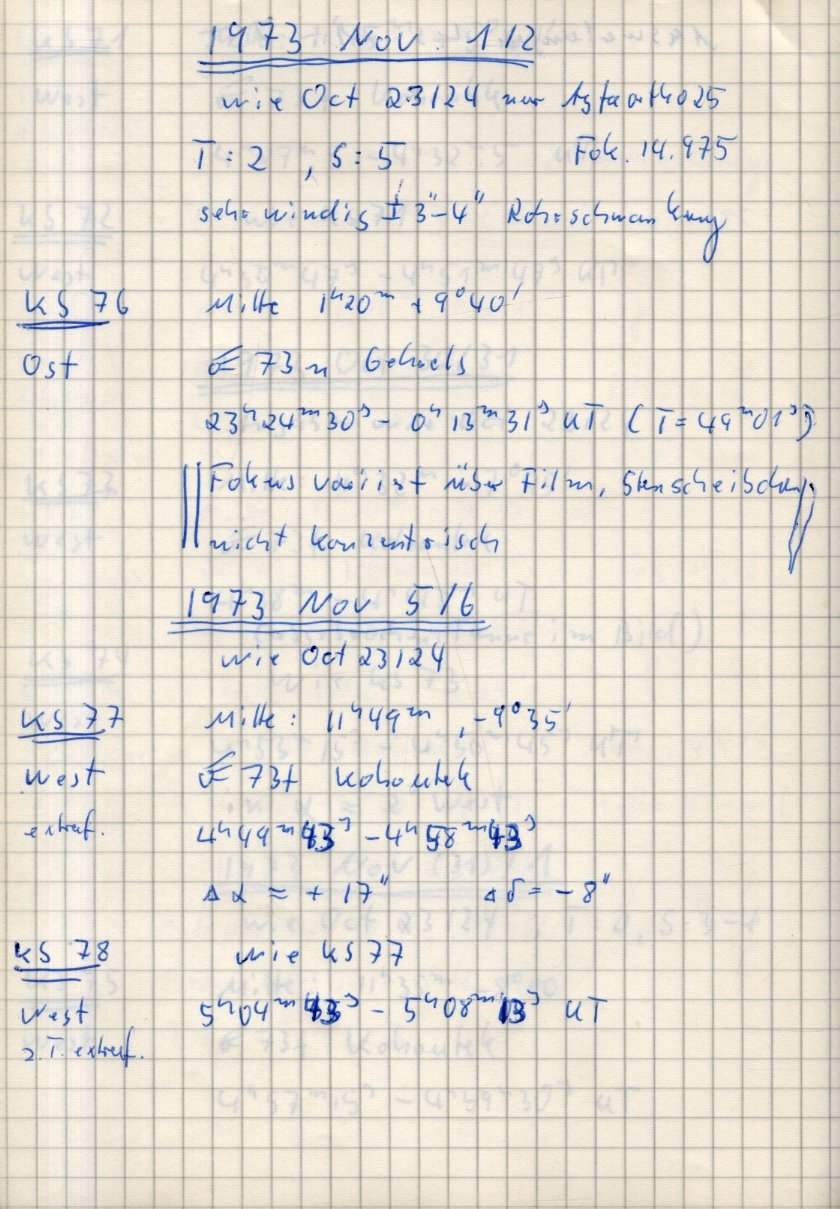 1973 Nov. 1/2
wie Oct 23/24 nur Agfaortho25
T: 2 , S: 5 Fok. 14.975
sehr windig ± 3"-4" Rohrschwankung
KS 76 Mitte 1h20m + 9°40'
Ost 73 n Gehrels
23h24m30s - 0h13m31s UT (T = 49m01s)
Fokus variiert über Film,
nicht konzentrisch
1973 Nov 5/6
wie Oct 23/24
KS 77 Mitte: 11h49m , -9°35'
West 73f Kohoutek
extraf. 4h49m43s - 4h58m43s
Δα ≈ + 17" Δδ = - 8"
KS 78 wie KS 77
West 5h04m43s - 5h08m13s UT
z.T. extraf.